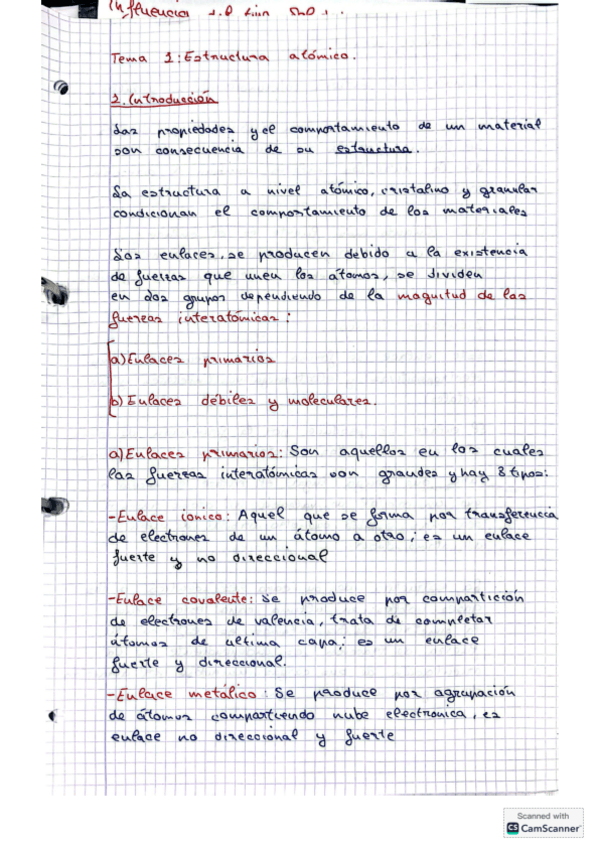 Influencia
Tema 1: Estructura atómico.
1. Introducción
Las propiedades y el comportamiento de un material
son consecuencia de su estructura.
La estructura a nivel atómico, cristalino y granular
condicionan el comportamiento de los materiales
Los enlaces, se producen debido a la existencia
de fuerzas que unen los átomos, se dividen
en dos grupos dependiendo de la magnitud de las
fuerzas interatómicas:
a) Enlaces primarios
b) Enlaces débiles y moleculares.
a) Enlaces primarios: Son aquellos en los cuales
las fuerzas interatómicas son grandes y hay 3 tipos:
-Enlace ionico: Aquel que se forma por transferencia
de electrones de un átomo a otro; es un enlace
fuerte y no direccional
-Enlace covalente: Se produce por compartición
de electrones de valencia, trata de completar
átomos de ultima capa; es un enlace
fuerte y direccional.
-Enlace metálico: Se produce por agrupación
de átomos compartiendo nube electronica, es
enlace no direccional y fuerte
Scanned with
CS CamScanner